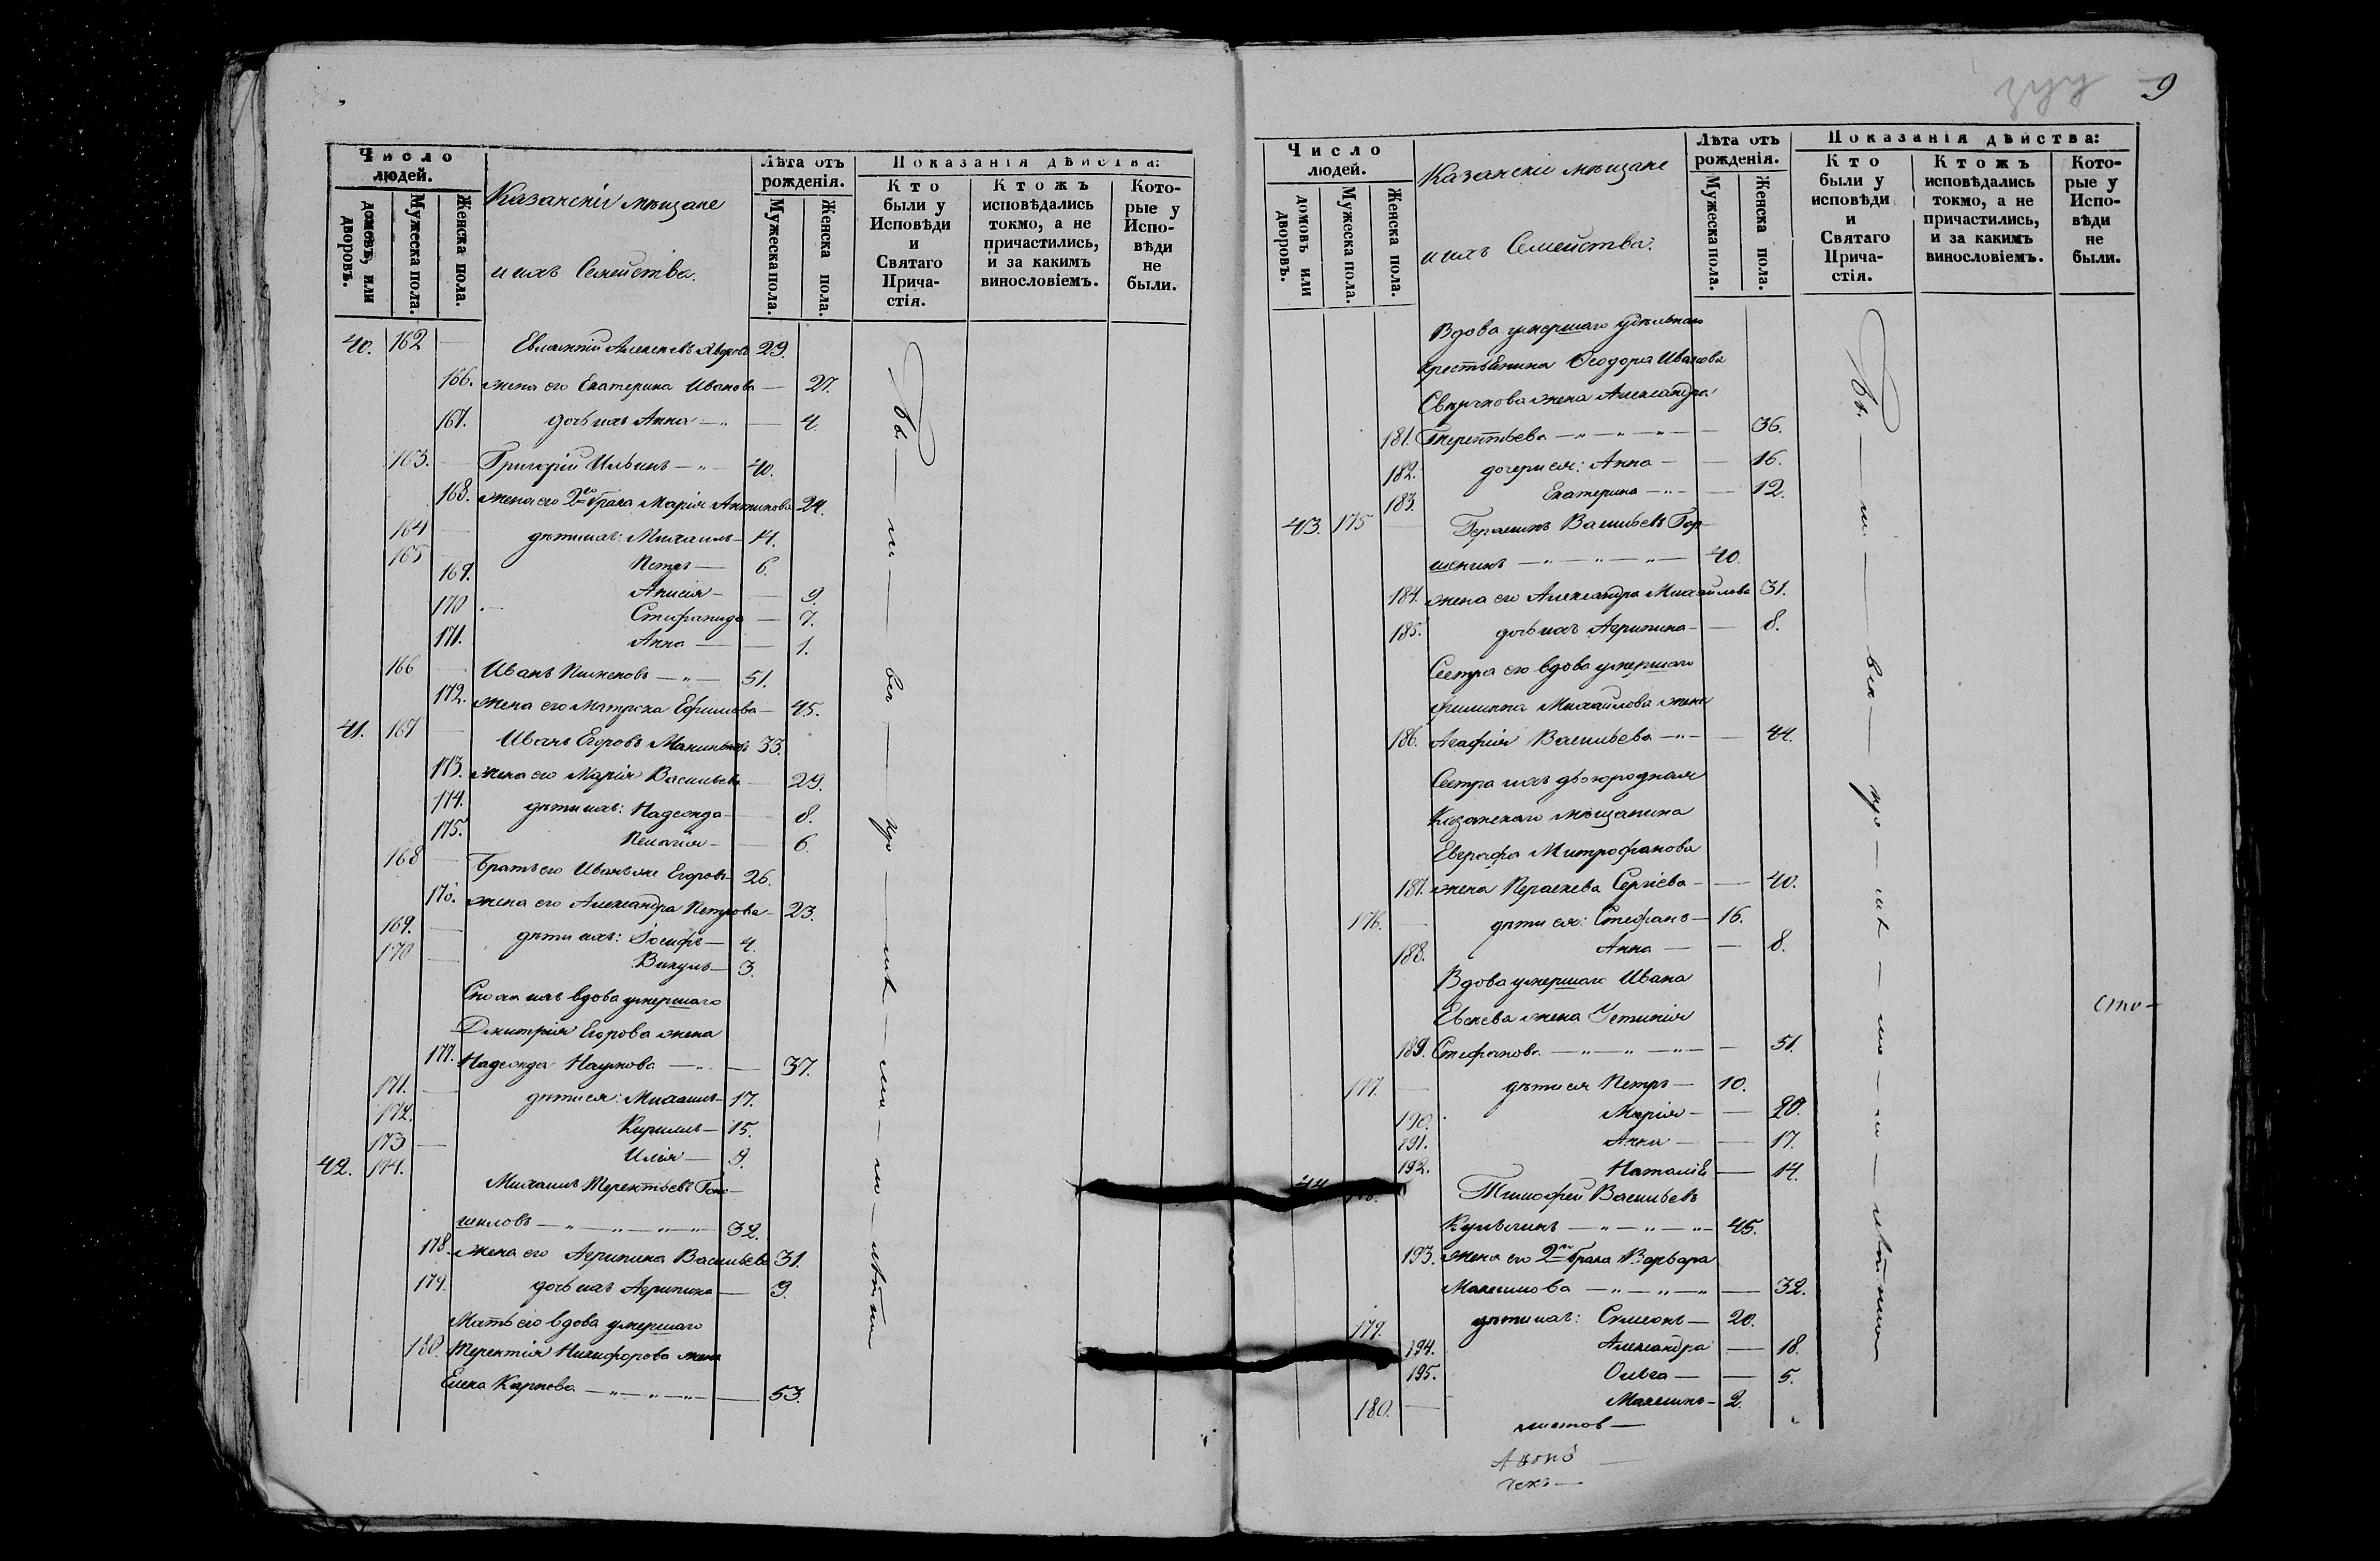 Число людей.
домовъ, или дворовъ.
Мужеска пола.
Женска пола.
Казанскіи мѣщане
и ихъ Семейства.
Лѣта отъ рожденія.
Мужеска пола.
Женска пола.
Показанія дѣйства:
Кто были у Исповѣди и Святаго Прича-стія.
Ктожъ исповѣдались токмо, а не причастились, и за какимъ винословіемъ.
Кото-рые у Испо-вѣди не были.
40. 162 Алексеевъ 29.
166. жена его Екатерина Иванова — 27.
167. дочь ихъ Анна — 4.
163. Григорій Ильинъ — 40.
168. жена его 2го брака Марія Антипова 24.
164 дѣти ихъ: Михаилъ — 14.
165 Петръ — 6.
169. Анисія — 9.
170 Стефанида — 7.
171. Анна — 1.
166 Иванъ Пименовъ — 51.
172. жена его Матрона Ефимова — 45.
41. 167 Иванъ Егоровъ 33.
173. жена его Марія Васильева — 29.
174. дѣти ихъ: Надежда — 8.
175. Пелагія — 6.
168 Братъ его Иванъ же Егоровъ 26.
176. жена его Александра Петрова — 23.
169. дѣти ихъ: Іосифъ — 4.
170 Викулъ — 3.
Сноха ихъ вдова умершаго
Димитрія Егорова жена
177. Надежда Наумова — 37.
171. дѣти ея: Михаилъ — 17.
172. Кирилъ — 15.
173 Илія — 9.
42. 174. Михаилъ Терентьевъ
шиловъ — 32.
178. жена его Агрипина Васильева 31.
179. дочь ихъ Агрипина — 9.
Мать его вдова умершаго
180. Терентія Никифорова жена
Елена Карпова — 53.
9
Число людей.
домовъ или дворовъ.
Мужеска пола.
Женска пола.
Казанскіе мѣщане
и ихъ Семейства.
Лѣта отъ рожденія.
Мужеска пола.
Женска пола.
Показанія дѣйства:
Кто были у исповѣди и Святаго Прича-стія.
Ктожъ исповѣдались токмо, а не причастились, и за какимъ винословіемъ.
Кото-рые у Испо-вѣди не были.
Вдова умершаго удѣльнаго
крестьянина Ѳеодора Иванова
жена Александра
181. Терентьева — 36.
182. дочери ея: Анна — 16.
183. Екатерина — 12.
43. 175 Герасимъ Васильевъ Гор-
шенинъ — 40.
184. жена его Александра Михайлова 31.
185. дочь ихъ Агрипина — 8.
Сестра его вдова умершаго
Филиппа Михайлова жена
186. Агафія Васильева — 44.
Сестра ихъ двоюродная
Казанскаго мѣщанина
Евграфа Митрофанова
187. жена Параскева Сергіева — 40.
176. дѣти ея: Стефанъ — 16.
188. Анна — 8.
Вдова умершаго Ивана
жена Устинія
189. Стефанова — 51.
177. дѣти ея Петръ — 10.
190. Марія — 20.
191. Анна — 17.
192. Наталія — 14.
44 178. Тимофей Васильевъ
45.
193. жена его 2го брака Варвара
Максимова — 32.
179. дѣти ихъ: Симеонъ — 20.
194. Александра — 18.
195. Ольга — 5.
180. Максимъ — 2.